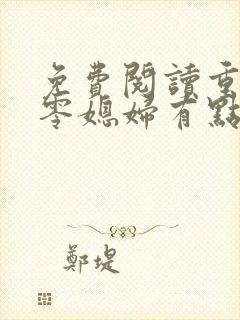 免費閱讀重
零媳婦有點
鄭堤